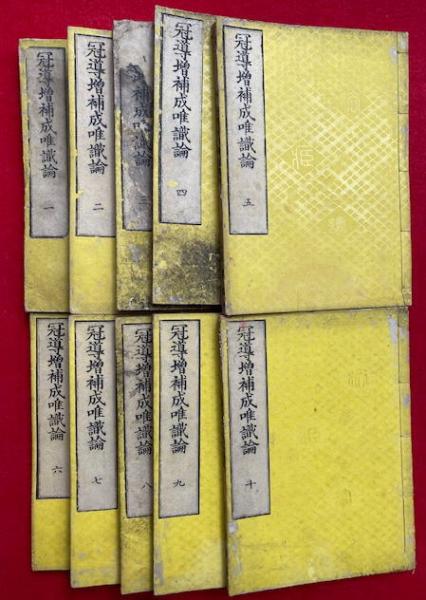 冠導增補成唯識論 一
冠導增補成唯識論 二
補成唯識論 三
冠導增補成唯識論 四
冠導增補成唯識論 五
冠導增補成唯識論 六
冠導增補成唯識論 七
冠導增補成唯識論 八
冠導增補成唯識論 九
冠導增補成唯識論 十